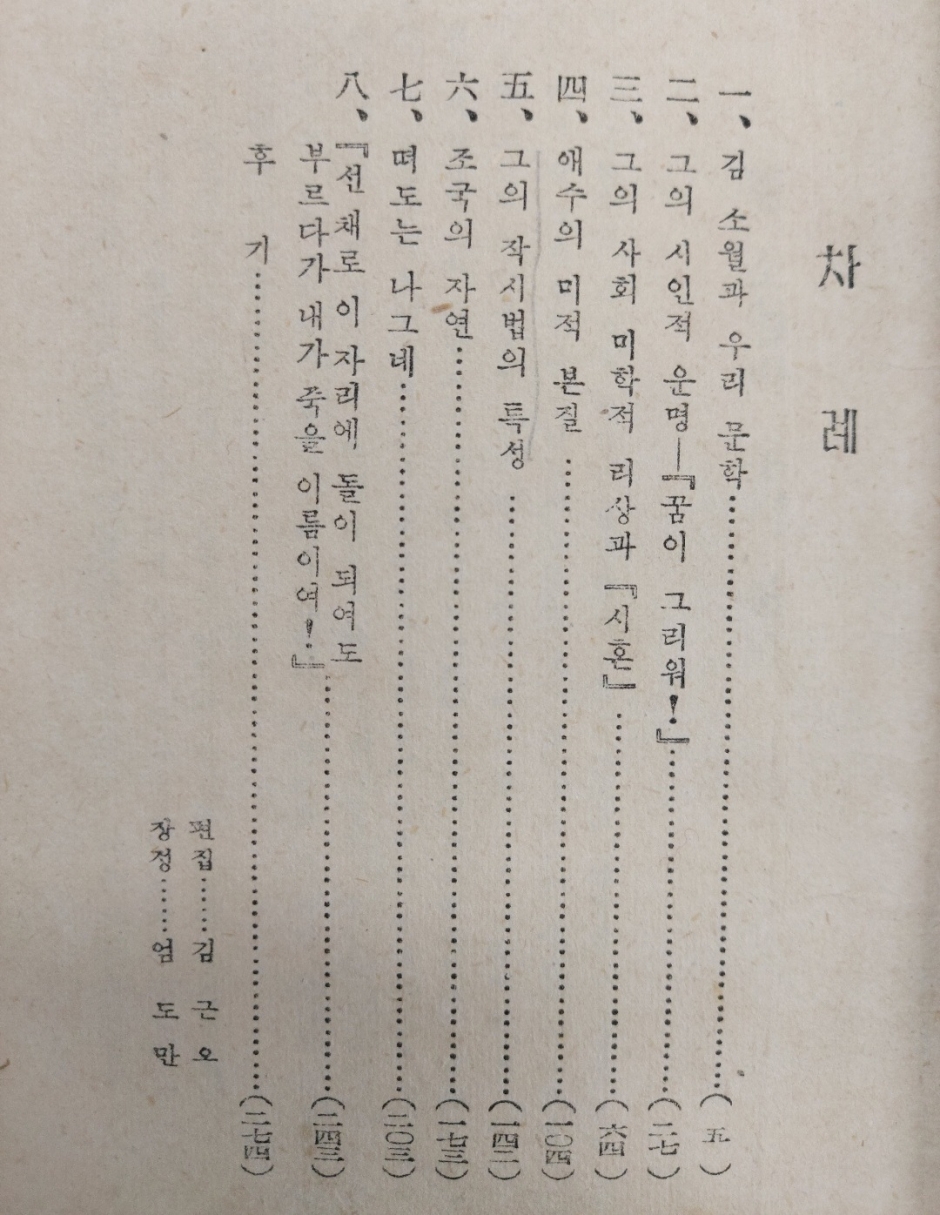 차 례
一、김 소월과 우리 문학……………(五)
二、그의 시인적 운명—『꿈이 그리워!』……………(二七)
三、그의 사회 미학적 리상과 『시혼』……………(六四)
四、애수의 미적 본질……………(一〇四)
五、그의 작시법의 특성……………(一四二)
六、조국의 자연……………(一七三)
七、떠도는 나그네……………(二〇三)
八、『선 채로 이 자리에 돌이 되여도
부르다가 내가 죽을 이름이여!』……………(二四三)
후 기……………(二七四)
편집……김 근 오
장정……엄 도 만